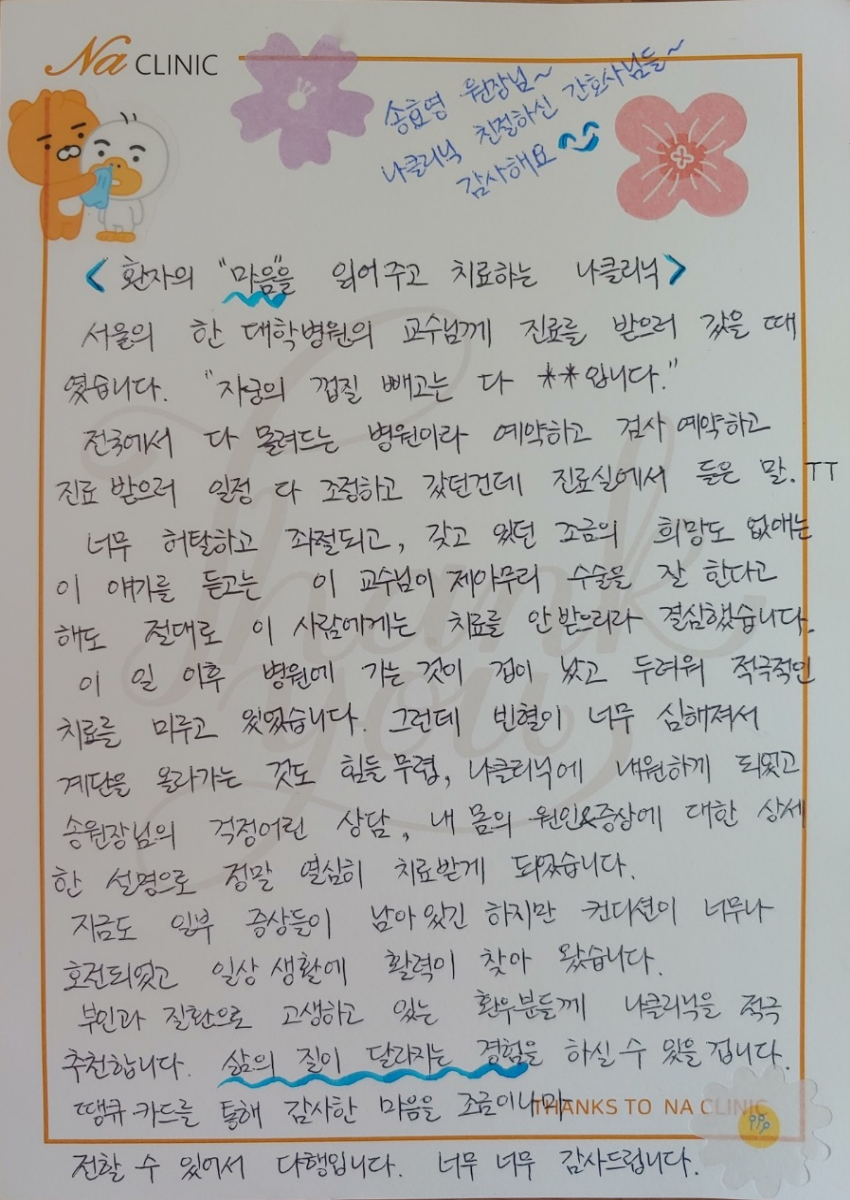 Na CLINIC
송효영 원장님~
나클리닉 친절하신 간호사님들~
감사해요
< 환자의 "마음"을 읽어주고 치료하는 나클리닉 >
서울의 한 대학병원의 교수님께 진료를 받으러 갔을 때
였습니다. "자궁의 껍질 빼고는 다 **입니다."
전국에서 다 몰려드는 병원이라 예약하고 검사 예약하고
진료 받으러 일정 다 조정하고 갔던건데 진료실에서 들은 말. TT
너무 허탈하고 좌절되고, 갖고 있던 조금의 희망도 없애는
이 얘기를 듣고는 이 교수님이 제아무리 수술을 잘 한다고
해도 절대로 이 사람에게는 치료를 안받으리라 결심했습니다.
이 일 이후 병원에 가는 것이 겁이 났고 두려워 적극적인
치료를 미루고 있었습니다. 그런데 빈혈이 너무 심해져서
계단을 올라가는 것도 힘들 무렵, 나클리닉에 내원하게 되었고
송원장님의 걱정어린 상담, 내 몸의 원인&증상에 대한 상세
한 설명으로 정말 열심히 치료받게 되었습니다.
지금도 일부 증상들이 남아있긴 하지만 컨디션이 너무나
호전되었고 일상 생활에 활력이 찾아 왔습니다.
부인과 질환으로 고생하고 있는 환우분들께 나클리닉을 적극
추천합니다. 삶의 질이 달라지는 경험을 하실 수 있을 겁니다.
땡큐 카드를 통해 감사한 마음을 조금이나마
THANKS TO NA CLINIC
전할 수 있어서 다행입니다. 너무 너무 감사드립니다.
Thank you